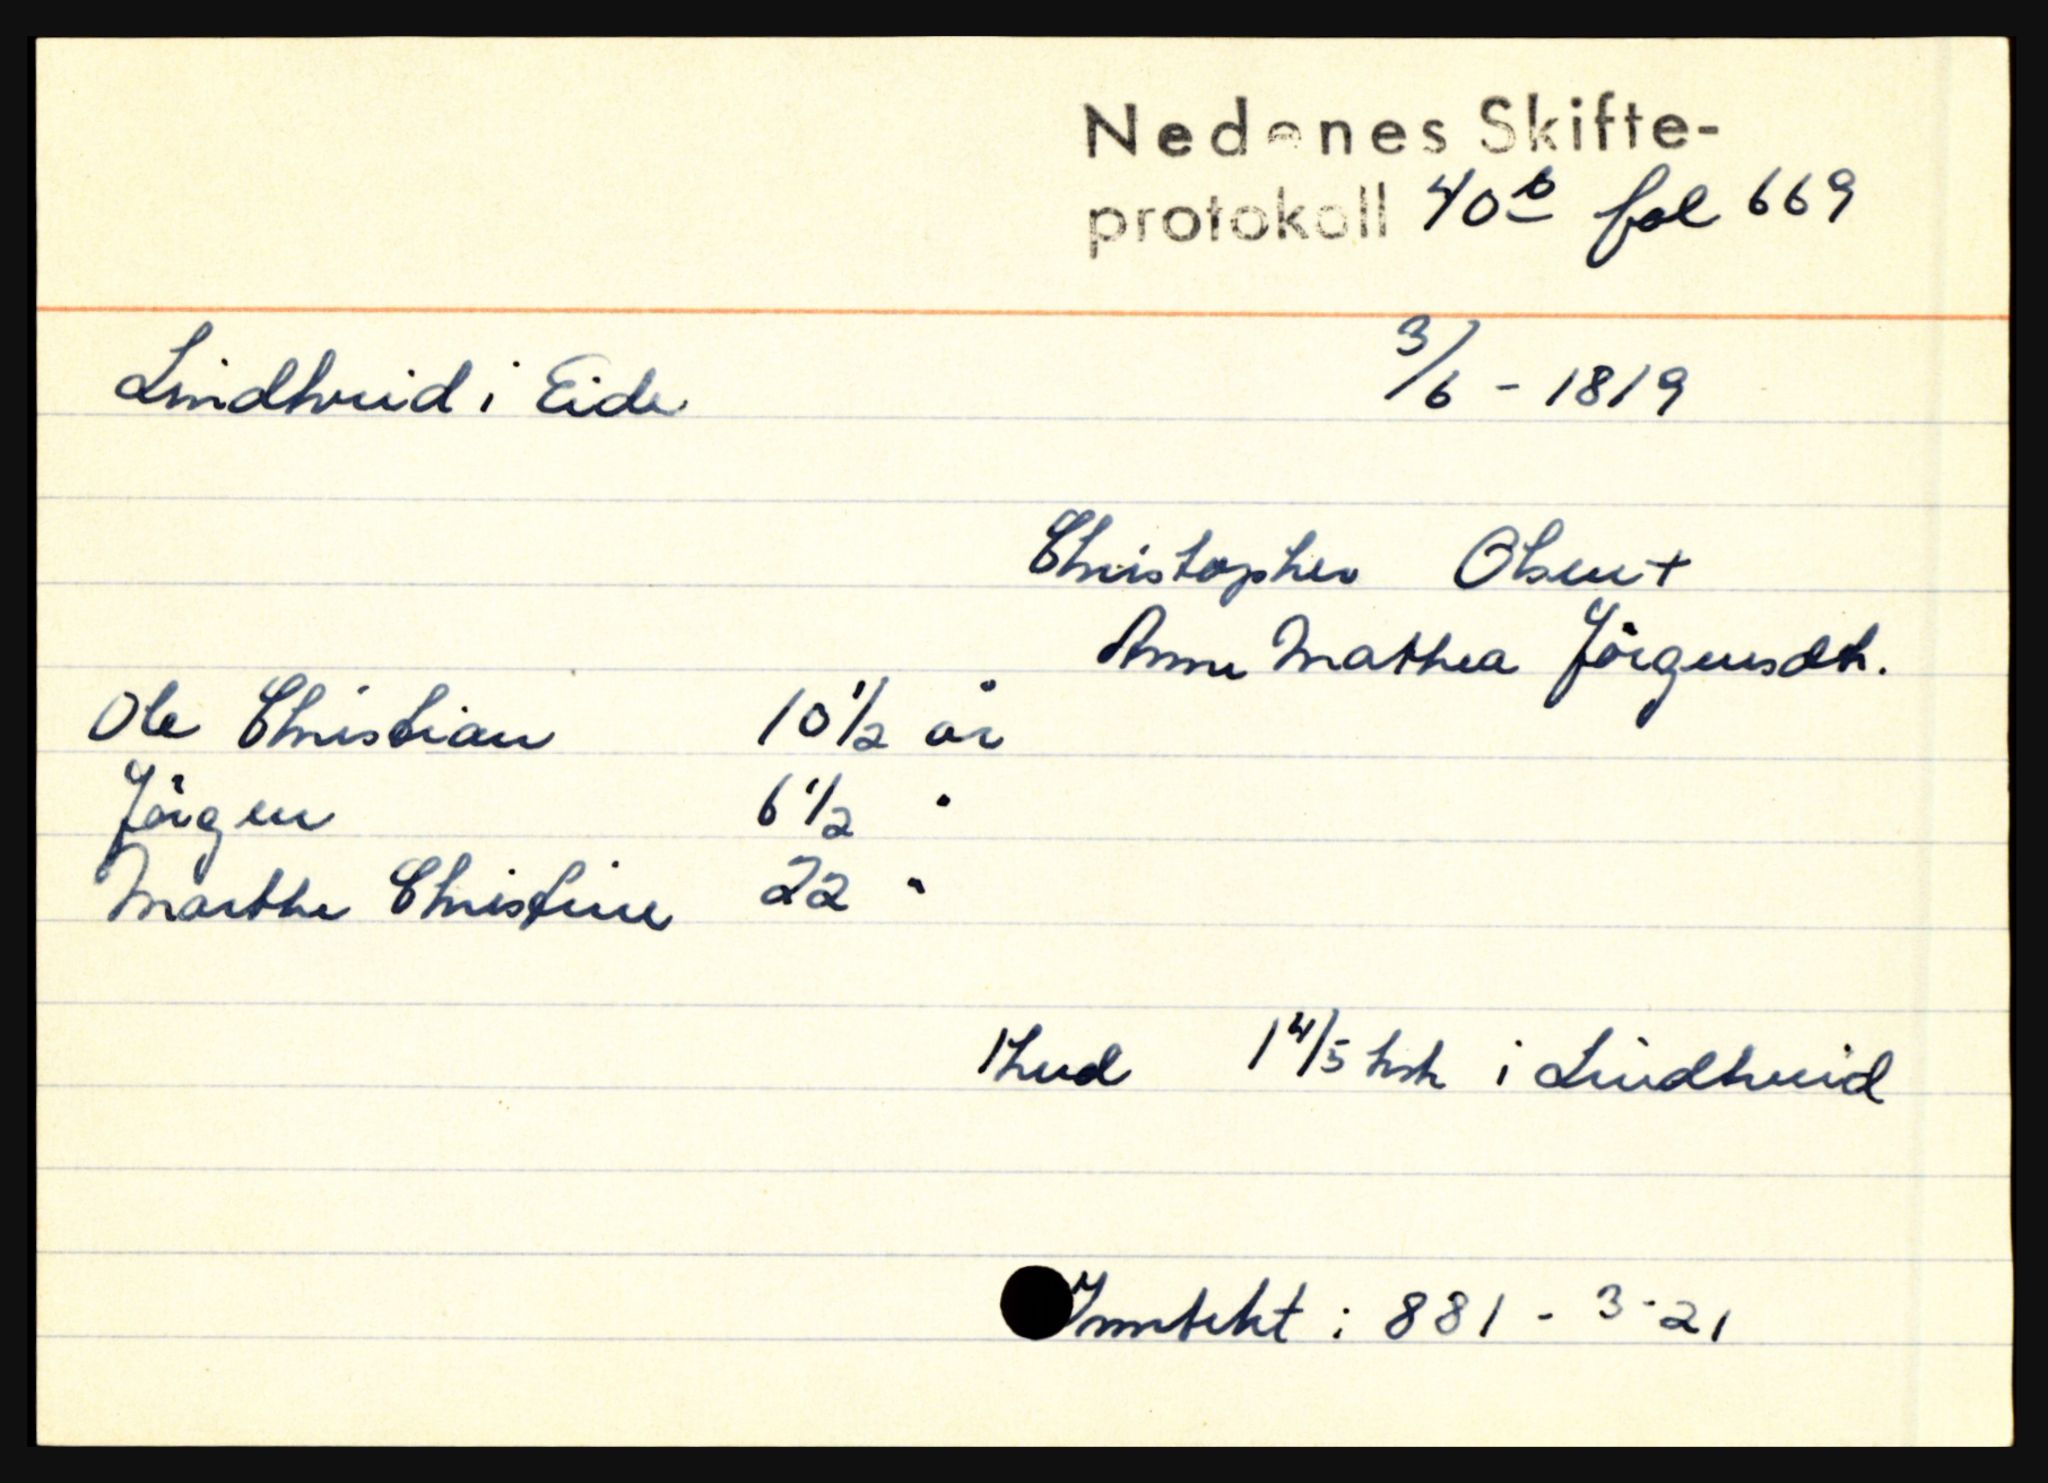 Nedenes Skifte-
protokoll 40b fol 669
Lindhvid i Eide 3/6 - 1819
Christopher Olsen +
Anne Mathea Jörgensdtr.
Ole Christian 10 1/2 år
Jörgen 6 1/2 "
Marthe Christine 22 "
1 hud 1 4/5 hsk i Lindhvid
Inntekt : 881 - 3 - 21